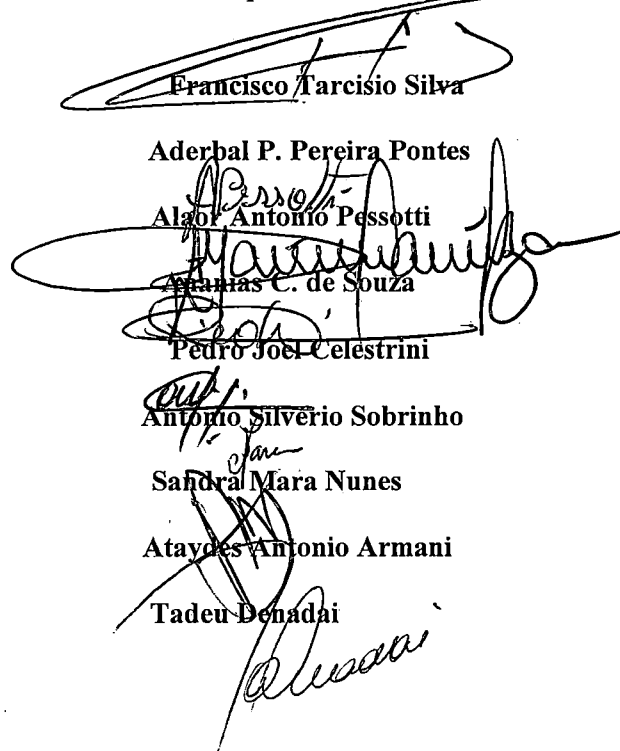 Francisco Tarcisio Silva
Aderbal P. Pereira Pontes
APessotti
Alaor Antonio Pessotti
Ananias C. de Souza
Pedro Joel Celestrini
Antonio Silverio Sobrinho
Sandra Mara Nunes
Ataydes Antonio Armani
Tadeu Denadai